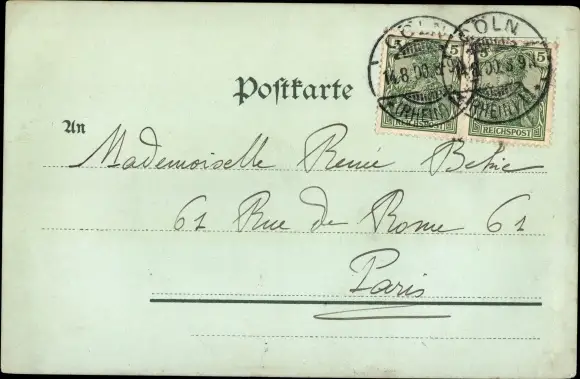 CÖLN CÖLN
5 5 5
14.8.00.8-9N 14.8.00.8-9N
(RHEIN) (RHEIN)
REICHSPOST
Postkarte
An
Mademoiselle Renée
61 Rue de Rome 61
Paris